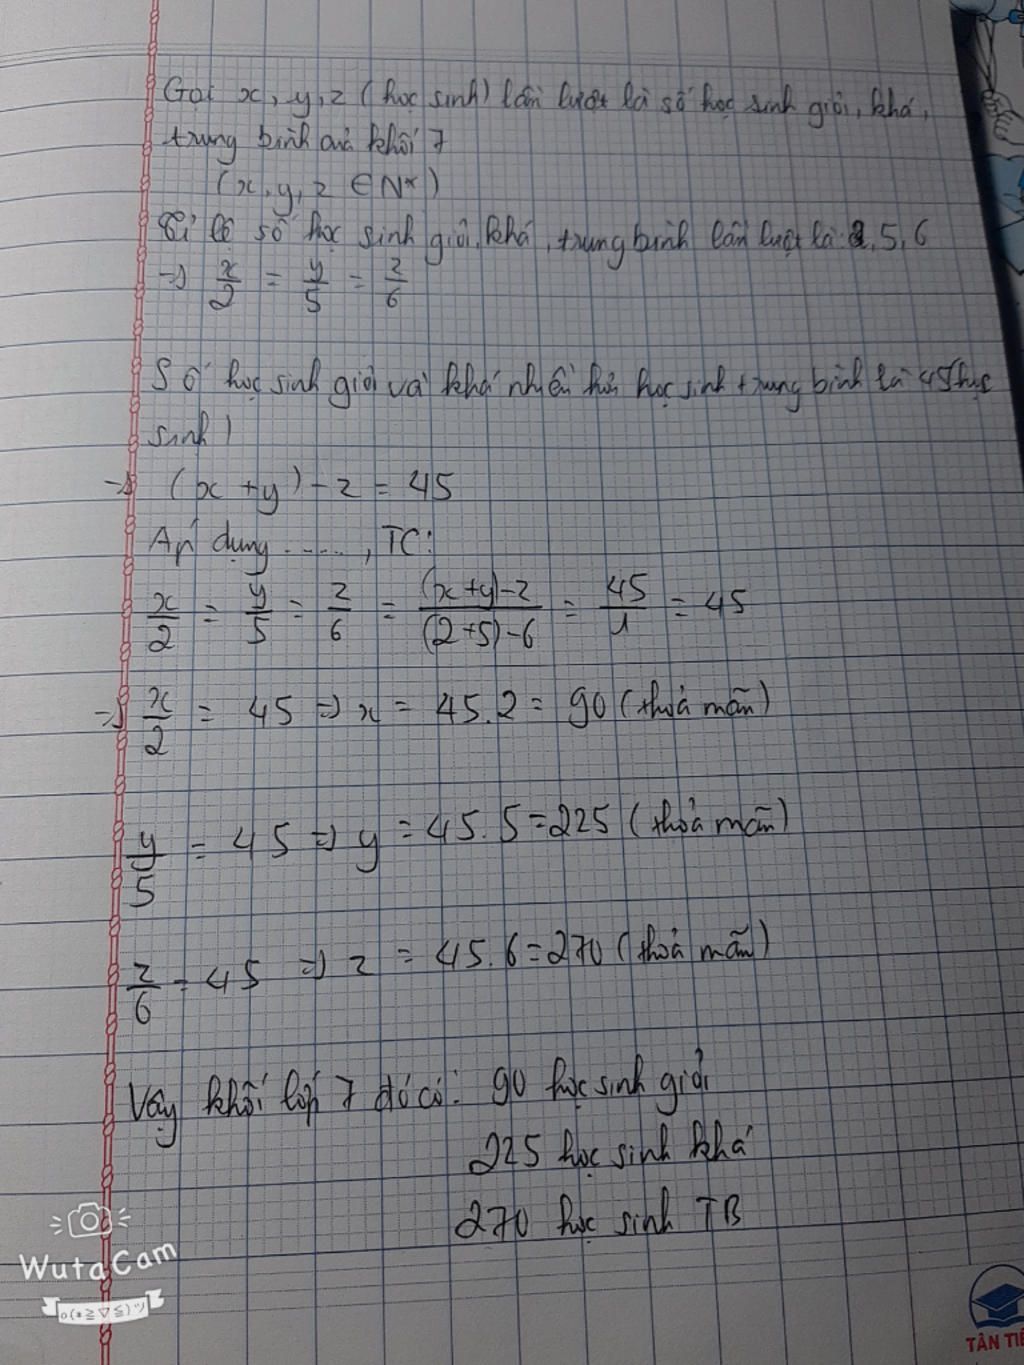 Gọi x, y, z (học sinh) lần lượt là số học sinh giỏi, khá,
trung bình của khối 7
(x, y, z ∈ N*)
Tỉ lệ số học sinh giỏi, khá, trung bình lần lượt là 2, 5, 6
=> x/2 = y/5 = z/6
Số học sinh giỏi và khá nhiều hơn học sinh trung bình là 45 học
sinh)
=> (x + y) - z = 45
Áp dụng ......, TC:
x/2 = y/5 = z/6 = (x+y)-z/(2+5)-6 = 45/1 = 45
=> x/2 = 45 => x = 45.2 = 90 (thoả mãn)
y/5 = 45 => y = 45.5 = 225 (thoả mãn)
z/6 = 45 => z = 45.6 = 270 (thoả mãn)
Vậy khối lớp 7 đó có: 90 học sinh giỏi
225 học sinh khá
270 học sinh TB
WutaCam
TÂN TIẾ